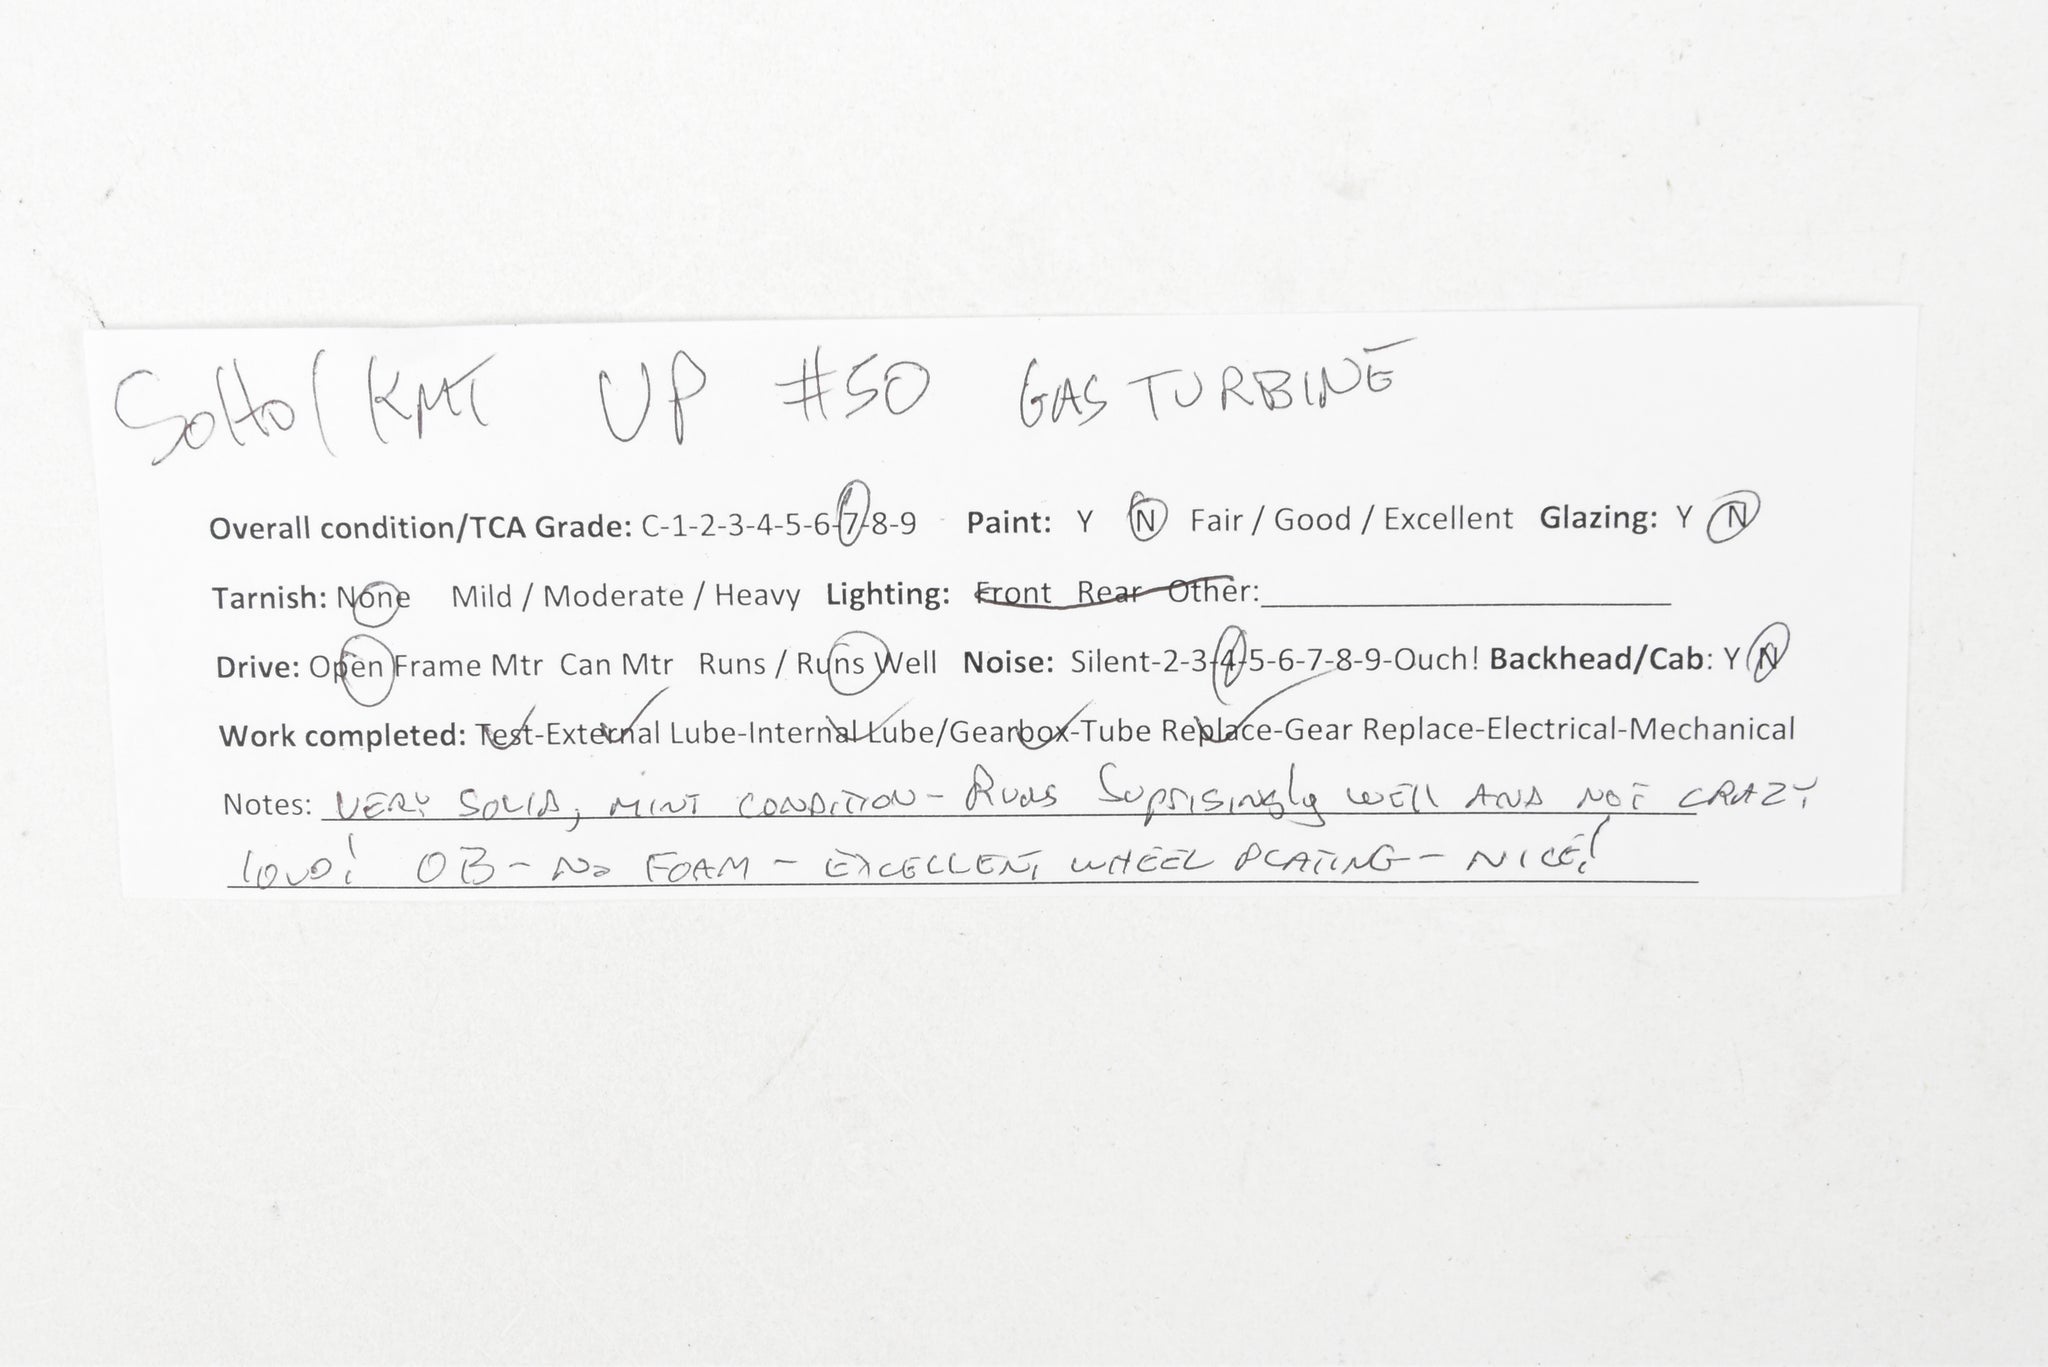 SoHo / KMT UP #50 GAS TURBINE
Overall condition/TCA Grade: C-1-2-3-4-5-6-7-8-9 Paint: Y N Fair / Good / Excellent Glazing: Y N
Tarnish: None Mild / Moderate / Heavy Lighting: Front Rear Other:
Drive: Open Frame Mtr Can Mtr Runs / Runs Well Noise: Silent-2-3-4-5-6-7-8-9-Ouch! Backhead/Cab: Y N
Work completed: Test-External Lube-Internal Lube/Gearbox-Tube Replace-Gear Replace-Electrical-Mechanical
Notes: VERY SOLID, MINT CONDITION - Runs Suprisingly WELL AND NOT CRAZY
loud! OB - No FOAM - EXCELLENT WHEEL PLATING - NICE!